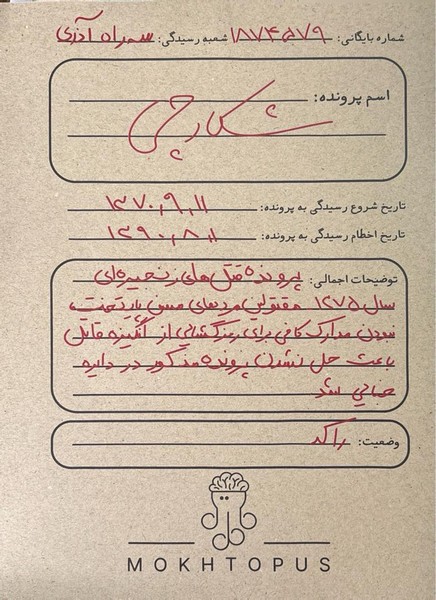 شماره بایگانی: ۱۸۷۴۵۷۹ شعبه رسیدگی: سه راه آذری
اسم پرونده:
شکارچی
تاریخ شروع رسیدگی به پرونده: ۱۳۷۰,۹,۱۱
تاریخ اخطام رسیدگی به پرونده: ۱۳۹۰,۸,۱۱
توضیحات اجمالی: پرونده قتل های زنجیره‌ای
سال ۱۳۷۵ مقتولین مردهای مسن پایتخت،
نبودن مدارک کافی برای رمزگشایی از انگیزه قاتل
باعث حل نشدن پرونده مذکور در دایره
جنایی شد
وضعیت: راکد
MOKHTOPUS